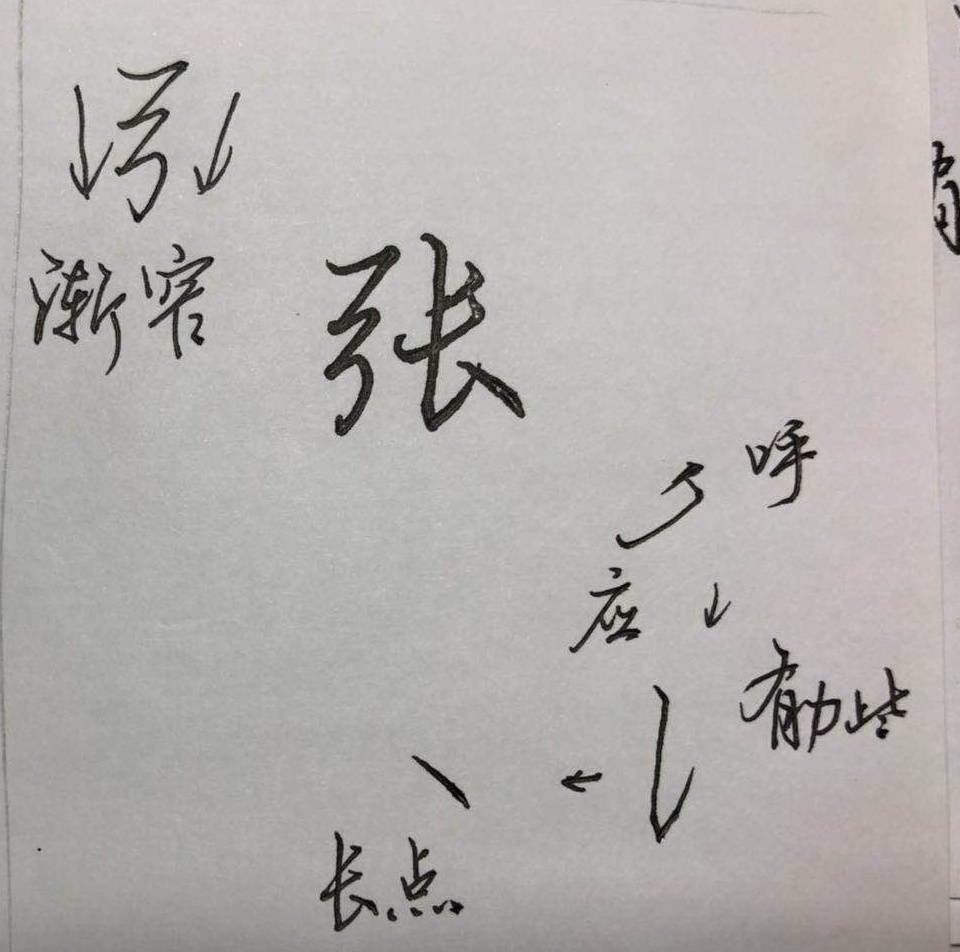 弓
渐窄
张
呼
应
有力些
长点